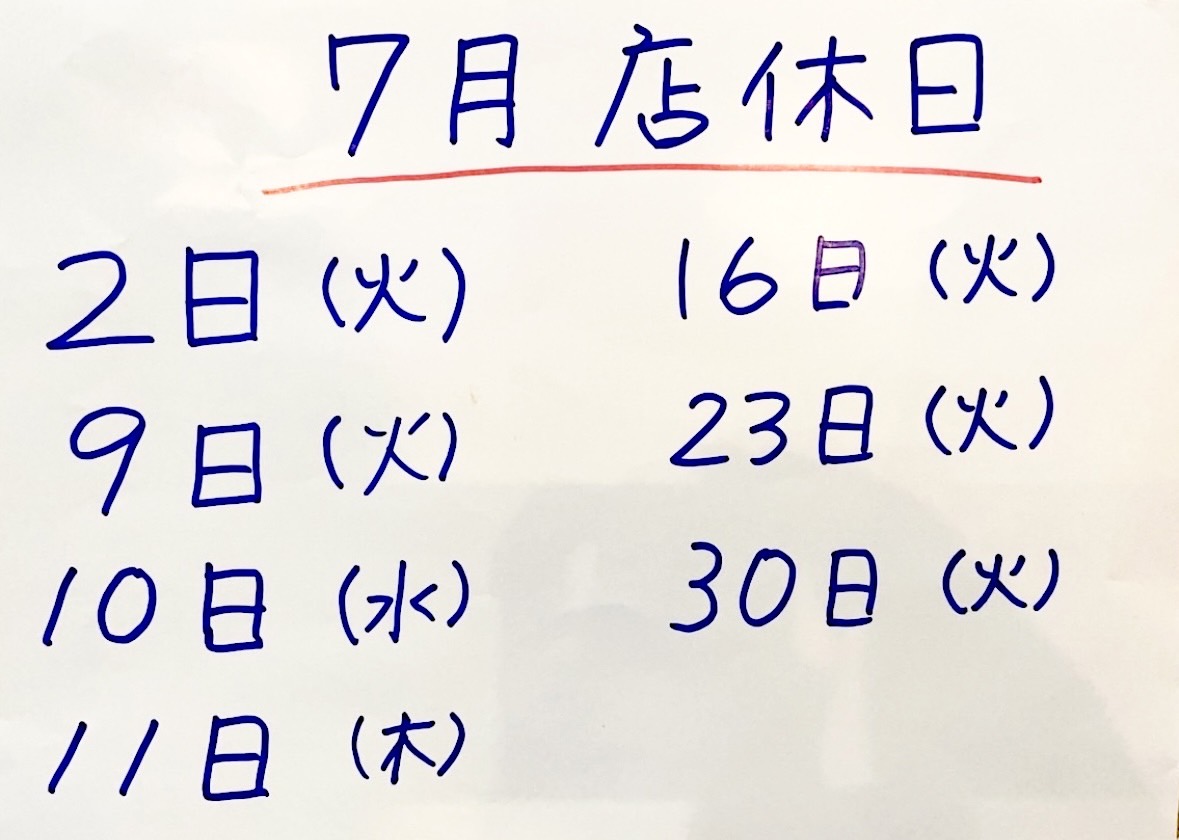 7月 店休日
2日 (火)
9日 (火)
10日 (水)
11日 (木)
16日 (火)
23日 (火)
30日 (火)